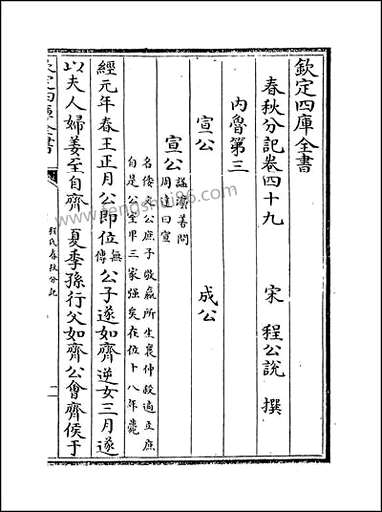 欽定四庫全書
春秋分記卷四十九
宋 程公說 撰
內魯第三
宣公 成公
宣公
諡法善問
周達曰宣
名倭文公庶子敬嬴所生襄仲殺適立庶
自是公室卑三家強矣在位十八年薨
經元年春王正月公即位無傳公子遂如齊逆女三月遂
以夫人婦姜至自齊 夏季孫行父如齊公會齊侯于
程氏春秋分記
一